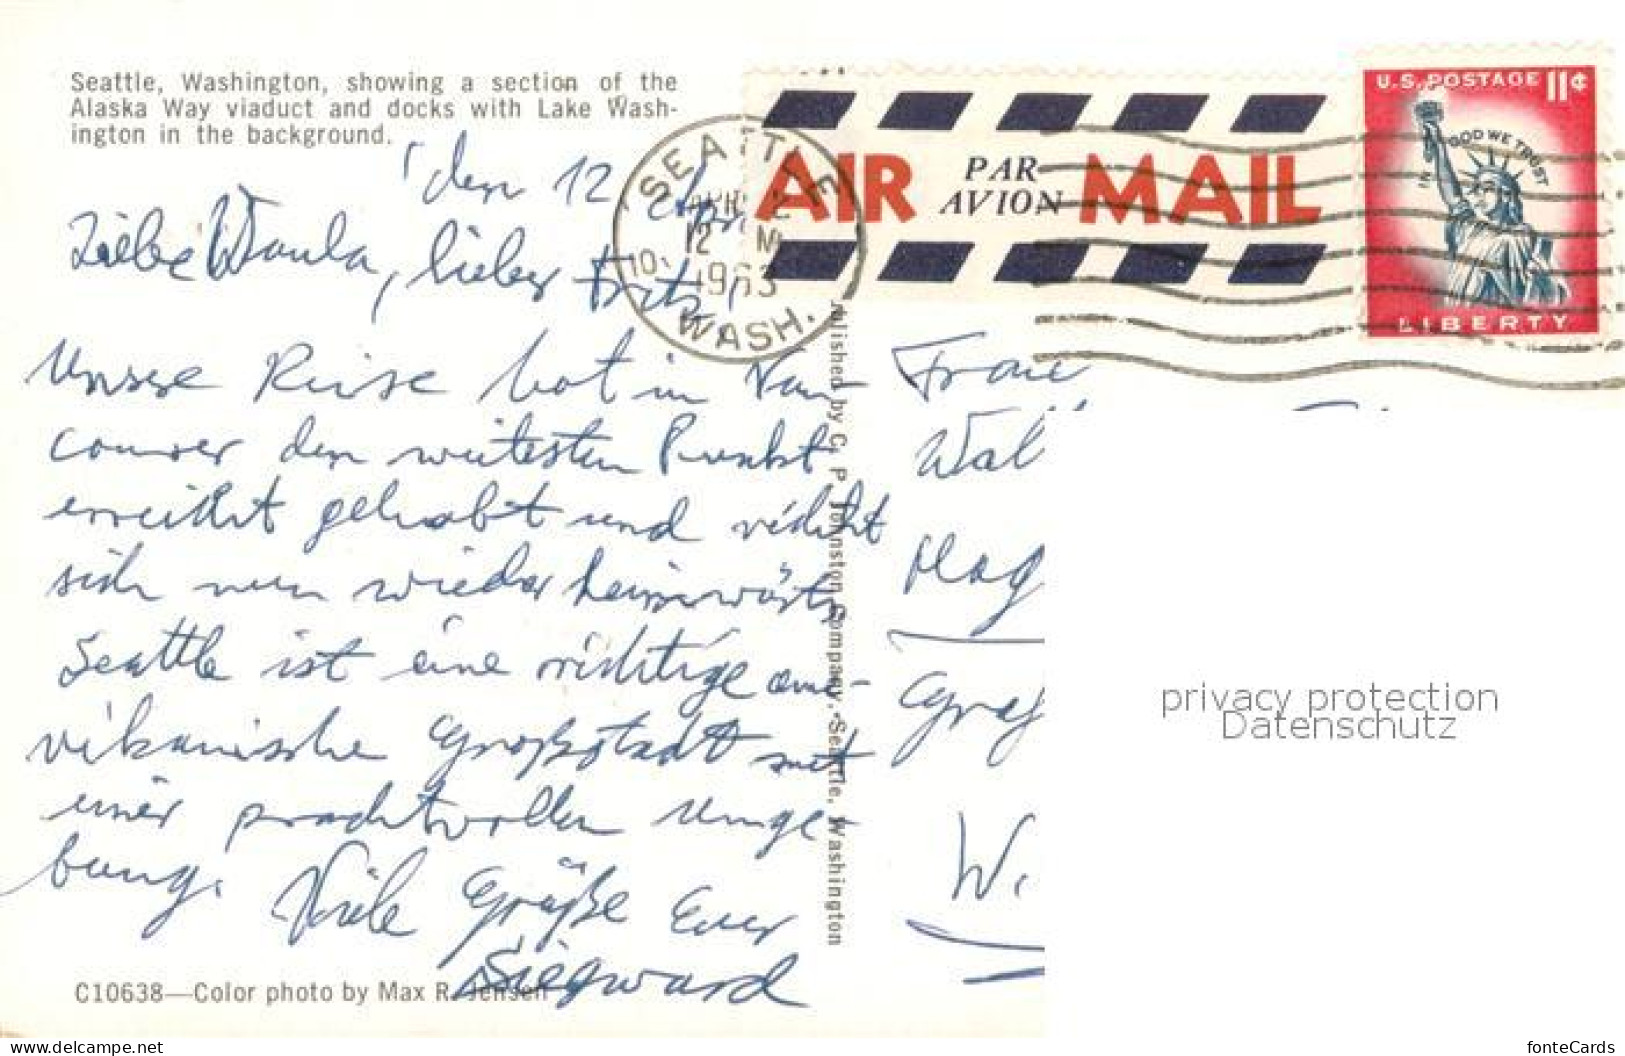 Seattle, Washington, showing a section of the
Alaska Way viaduct and docks with Lake Wash-
ington in the background.
den 12 Apr
Liebe Waula, lieber Fritz!
Unsere Reise hat in Van-
couver den weitesten Punkt
erreicht gehabt und richtet
sich nun wieder heimwärts
Seattle ist eine richtige ame-
rikanische Großstadt mit
einer prachtvollen Umge-
bung. Viele Grüße Euer
Siegward
C10638—Color photo by Max R. Jensen
Published by C. P. Johnston Company, Seattle, Washington
SEATTLE
12 M
1963
WASH.
AIR PAR AVION MAIL
U.S. POSTAGE 11¢
IN GOD WE TRUST
LIBERTY
Frau
Wal
Hag
Graf
W.
privacy protection
Datenschutz
www.delcampe.net
fonteCards